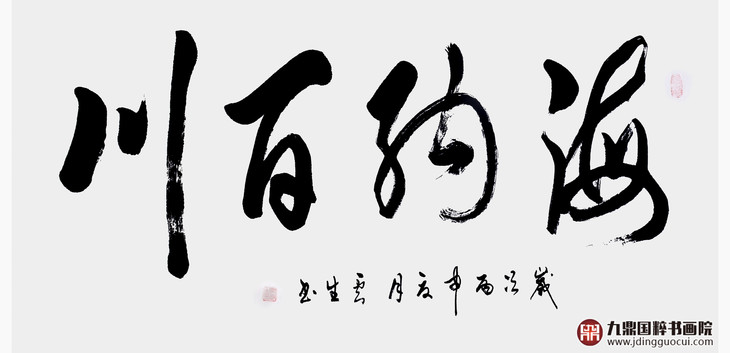 海纳百川
岁次丙申夏月云生书
九鼎国粹书画院
www.jdingguocui.com